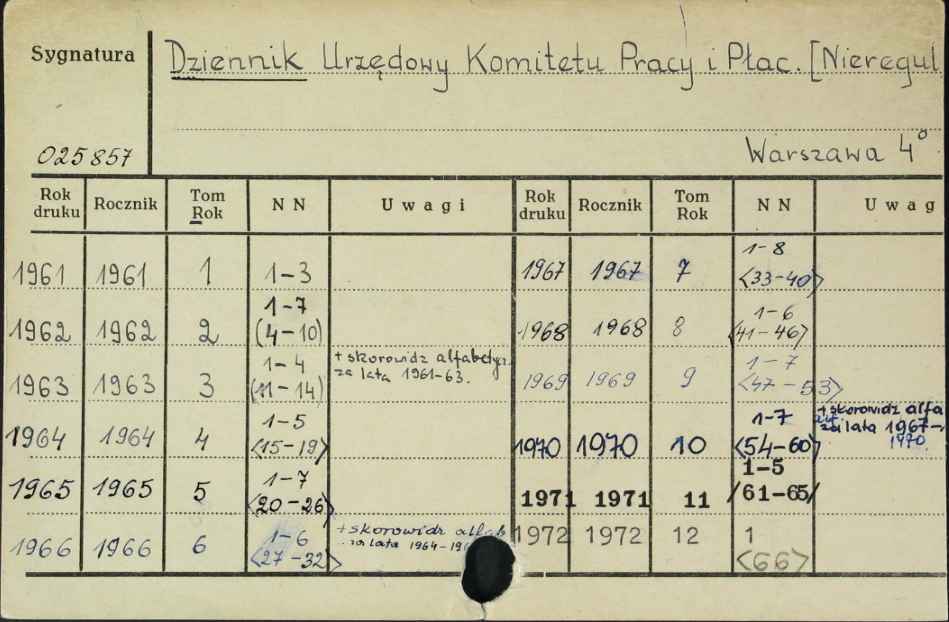 Sygnatura
Dziennik Urzędowy Komitetu Pracy i Płac. [Nieregul
025857
Warszawa 4°
Rok druku Rocznik Tom Rok NN Uwagi Rok druku Rocznik Tom Rok NN Uwag
1961 1961 1 1-3 1967 1967 7 1-8 <33-40>
1962 1962 2 1-7 (4-10) 1968 1968 8 1-6 <41-46>
1963 1963 3 1-4 (11-14) + skorowidz alfabetycz. za lata 1961-63. 1969 1969 9 1-7 <47-53>
1964 1964 4 1-5 <15-19> 1970 1970 10 1-7 <54-60> + skorowidz alfa za lata 1967-1970.
1965 1965 5 1-7 <20-26> 1971 1971 11 1-5 /61-65/
1966 1966 6 1-6 <27-32> + skorowidz alfab za lata 1964-19 1972 1972 12 1 <66>